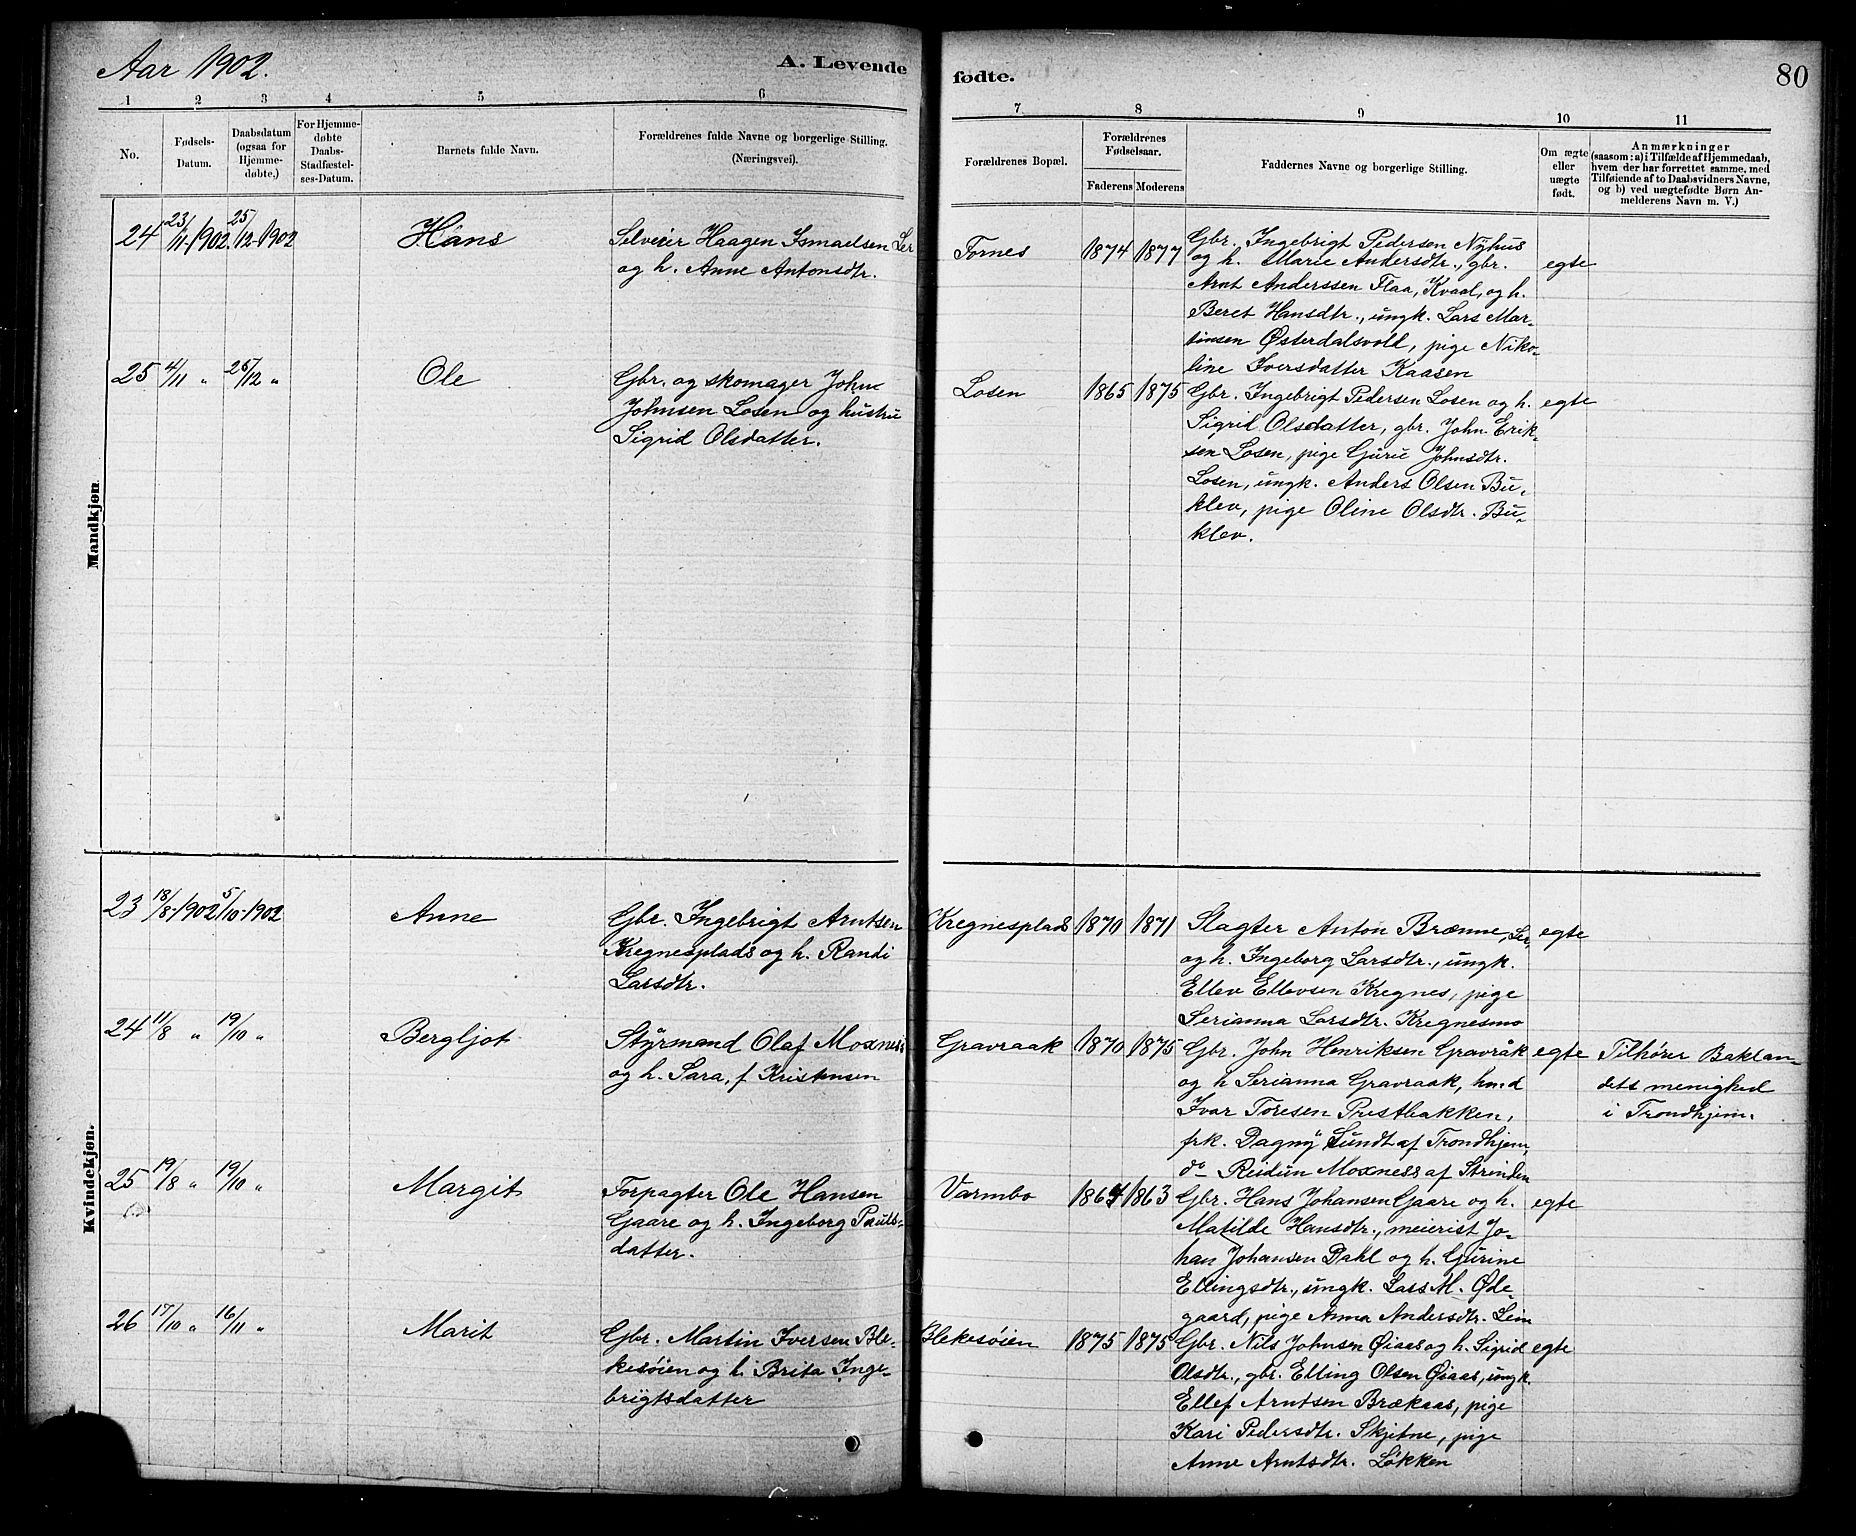 Aar 1902.
A. Levende
fødte.
80
1 2 3 4 5 6
7 8 9 10 11
No.
Fødsels-
Datum.
Daabsdatum
(ogsaa for
Hjemme-
døbte.)
For Hjemme-
døbte
Daabs-
Stadfæstel-
ses-Datum.
Barnets fulde Navn.
Forældrenes fulde Navne og borgerlige Stilling.
(Næringsvei).
Forældrenes Bopæl.
Forældrenes
Fødselsaar.
Faderens Moderens
Faddernes Navne og borgerlige Stilling.
Om ægte
eller
uægte
født.
Anmærkninger
(saasom: a) i Tilfælde af Hjemmedaab,
hvem der har forrettet samme, med
Tilføiende af to Daabsvidners Navne,
og b) ved uægtefødte Børn An-
melderens Navn m. V.)
Mandkjøn
24 23/11-1902 25/12-1902 Hans
Selveier Haagen Ismaelsen Ler
og h. Anne Antonsdtr.
Fornes 1874 1877
Gbr. Ingebrigt Pedersen Nyhus
og h. Marie Andersdtr., gbr.
Arnt Anderssen Flaa, Kvaal, og h.
Beret Hansdtr., ungk. Lars Mar-
tinsen Østerdalsvold, pige Niko-
line Iversdatter Kaasen
egte
25 4/11 " 25/12 " Ole
Gbr. og skomager John
Johnsen Losen og hustru
Sigrid Olsdatter.
Losen 1865 1875
Gbr. Ingebrigt Pedersen Losen og h.
Sigrid Olsdatter, gbr. John Erik-
sen Losen, pige Guru Johnsdtr.
Losen, ungk. Anders Olsen Bu-
klev, pige Oline Olsdtr. Bu-
klev.
egte
Kvindekjøn.
23 18/8-1902 5/10-1902 Anne
Gbr. Ingebrigt Arntsen
Kregnesplads og h. Randi
Larsdtr.
Kregnesplads 1870 1871
Slagter Anton Brænne, Ler
og h. Ingeborg Larsdtr., ungk.
Ellev Ellevsen Kregnes, pige
Serianna Larsdtr. Kregnesmo
egte
24 11/8 " 19/10 " Bergljot
Styrmand Olaf Moxness
og h. Sara, f. Kristensen
Gravraak 1870 1875
Gbr. John Henriksen Gravråk
og h Serianna Gravraak, hmd
Ivar Toresen Prestbakken,
frk. Dagny Lundt af Trondhjem
do Reidun Moxness af Strinden
egte
Tilhører Baklan-
dets menighed
i Trondhjem.
25 19/8 " 19/10 " Margit
Forpagter Ole Hansen
Gaare og h. Ingeborg Pauls-
datter.
Varmbo 1864 1863
Gbr. Hans Johansen Gaare og h.
Matilde Hansdtr., meierist Jo-
han Johansen Dahl og h. Gurine
Ellingsdtr., ungk. Lars M. Øde-
gaard, pige Anna Andersdtr. Lein
egte
26 17/10 " 16/11 " Marit
Gbr. Martin Iversen Ble-
kesøien og h. Brita Inge-
brigtsdatter
Blekesøien 1875 1875
Gbr. Nils Johnsen Øiaas og h. Sigrid
Olsdtr., gbr. Elling Olsen Øiaas, ungk.
Ellef Arntsen Brækaas, pige
Kari Pedersdtr. Skjetne, pige
Anne Arntsdtr. Løkken
egte